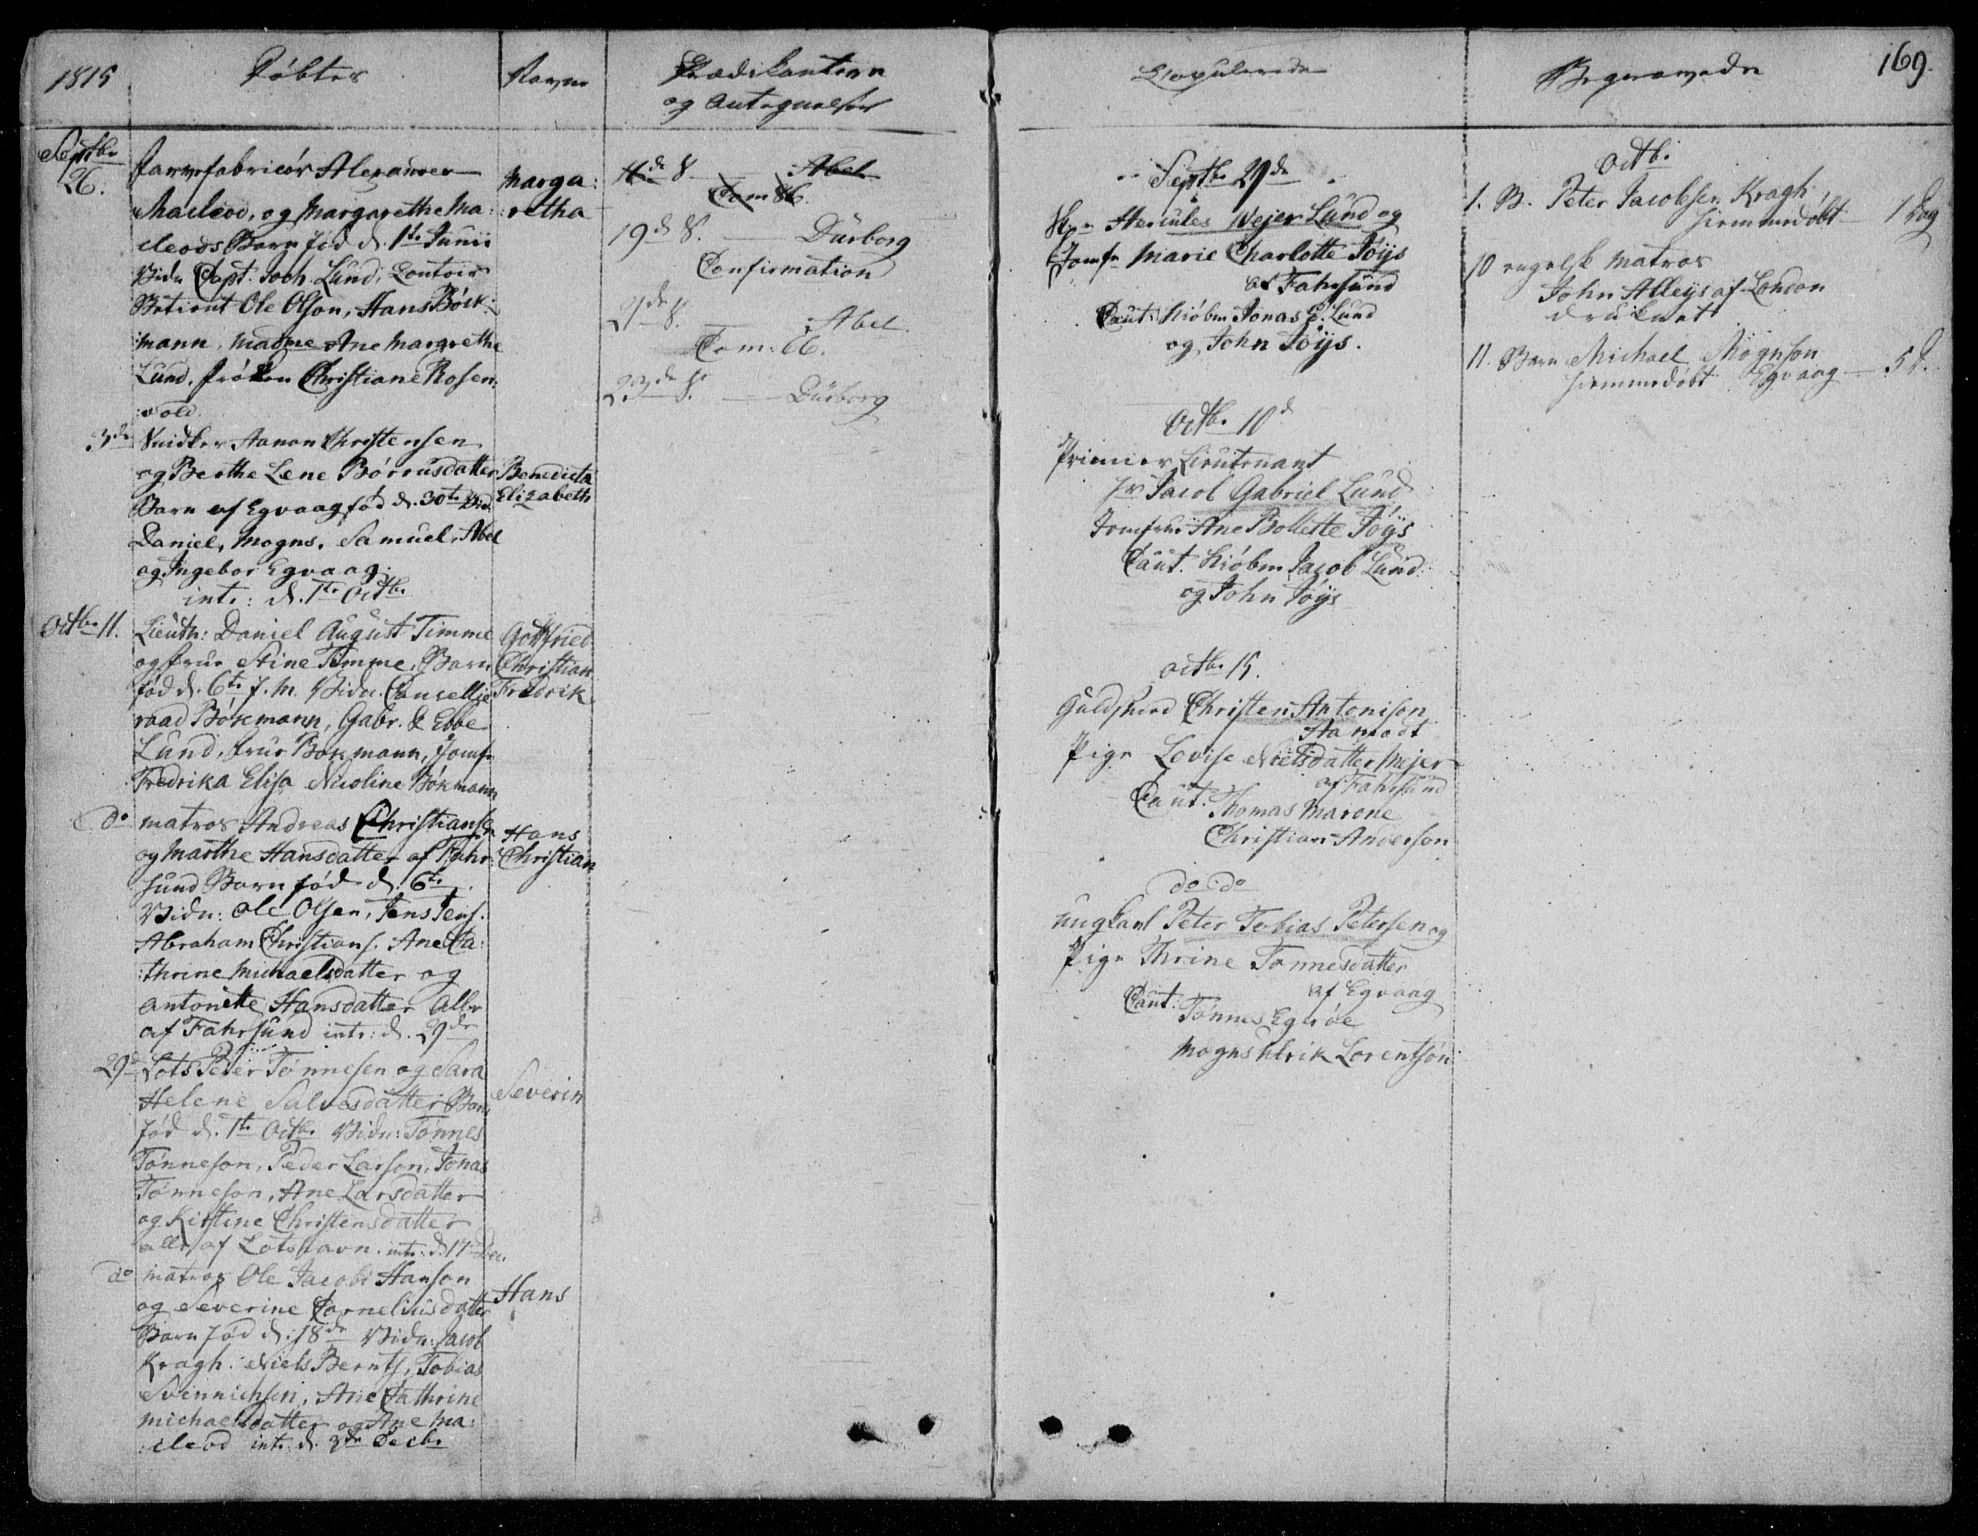 1815
Døbte
Navne
Prædikanterne
og Antegnelser
Copulerede
Begravede
169.
Septbr
26.
Alexander
Macleod, og Margarethe Ma:
cleods Barn fød d. 1te Junii
Vidn Capt. Joch. Lund, Contoir
Betient Ole Olson, Hans Böck:
mann, Madme Ane Margrethe
Lund, Frøken Christiane Rosen:
:vold.
Marga:
:retha
3de Snidker Aanon Christensen
og Berthe Lene Børrusdatter
Barn af Egvaag fød d. 30te
Daniel, Mogns, Samuel, Abel
og Ingebor Egvaag.
intr: d. 1te Octbr
Benedicta
Elizabeth
Octbr 11. Lieutn: Daniel August Timme
og Frue Stine Timme, Barn
fød d. 6te f. M. Vidn. Cancellie
raad Bökmann, Gabr. & Ebbe
Lund, Frue Bökmann, Jomfr
Fredrika Elisa Nicoline Bökmann
Gottfried
Christian
Fredrik
do Matros Andreas Christiansen
og Marthe Hansdatter af Fahr
sund Barn fød d. 6te
Vidn: Ole Olsen, Jens Jens.
Abraham Christians. Ane Ca:
:thrine Michaelsdatter og
Antonette Hansdatter alle
af Fahrsund intr: d. 29de
Hans
Christian
29de Lots Peder Tønnesen og Sara
Helene Salvesdatter Barn
fød d. 1te Octbr Vidn: Tønnes
Tønneson, Peder Larson, Jonas
Tønneson, Ane Larsdatter
og Kirstine Christensdatter
alle af Lotshavn. intr: d. 17
Severin
do Matros Ole Jacobs Hanson
og Severine Corneliusdatter
Barn fød d: 18de Vidn: Jacob
Kragh. Niels Bernts, Tobias
Svennichsen, Ane Cathrine
Michaelsdatter og Ane Ma:
:cleod intr: d. 3de Decbr
Hans
11de S. Abel
Com: 86.
19de S. Dürborg
Confirmation
21de S. Abel.
Com: 66.
23de S. Dürborg
Septbr 29de
Hercules Wejer Lund og
Jomfr Marie Charlotte Jöÿs
af Fahrsund
Caut: Kiöbm Jonas E. Lund
og John Jöÿs.
Octbr 10d
Primier Lieutenant
Hr Jacob Gabriel Lund
Jomfrue Ane Bollette Jöÿs
Caut. Kiöbm Jacob Lund
og John Jöÿs
Octbr 15.
Guldsmed Christen Antonison
Aamodt
Pige Lovise Nielsdatter Mejer
af Fahrsund
Caut. Thomas Marone
Christian Anderson
do do
Ungkarl Peter Tobias Petersen og
Pige Thrine Tønnesdatter
af Egvaag
Caut: Tønnes Egerøe
Mogns Ulrik Lorentson
Octbr
1. B. Peter Jacobsen Kragh
hiemmedøbt 1 Dag
10 engelsk Matros
John Alleÿs af London
druknet
11. Barn Michael Mognson
hiemmedøbt Egvaag 5 D.